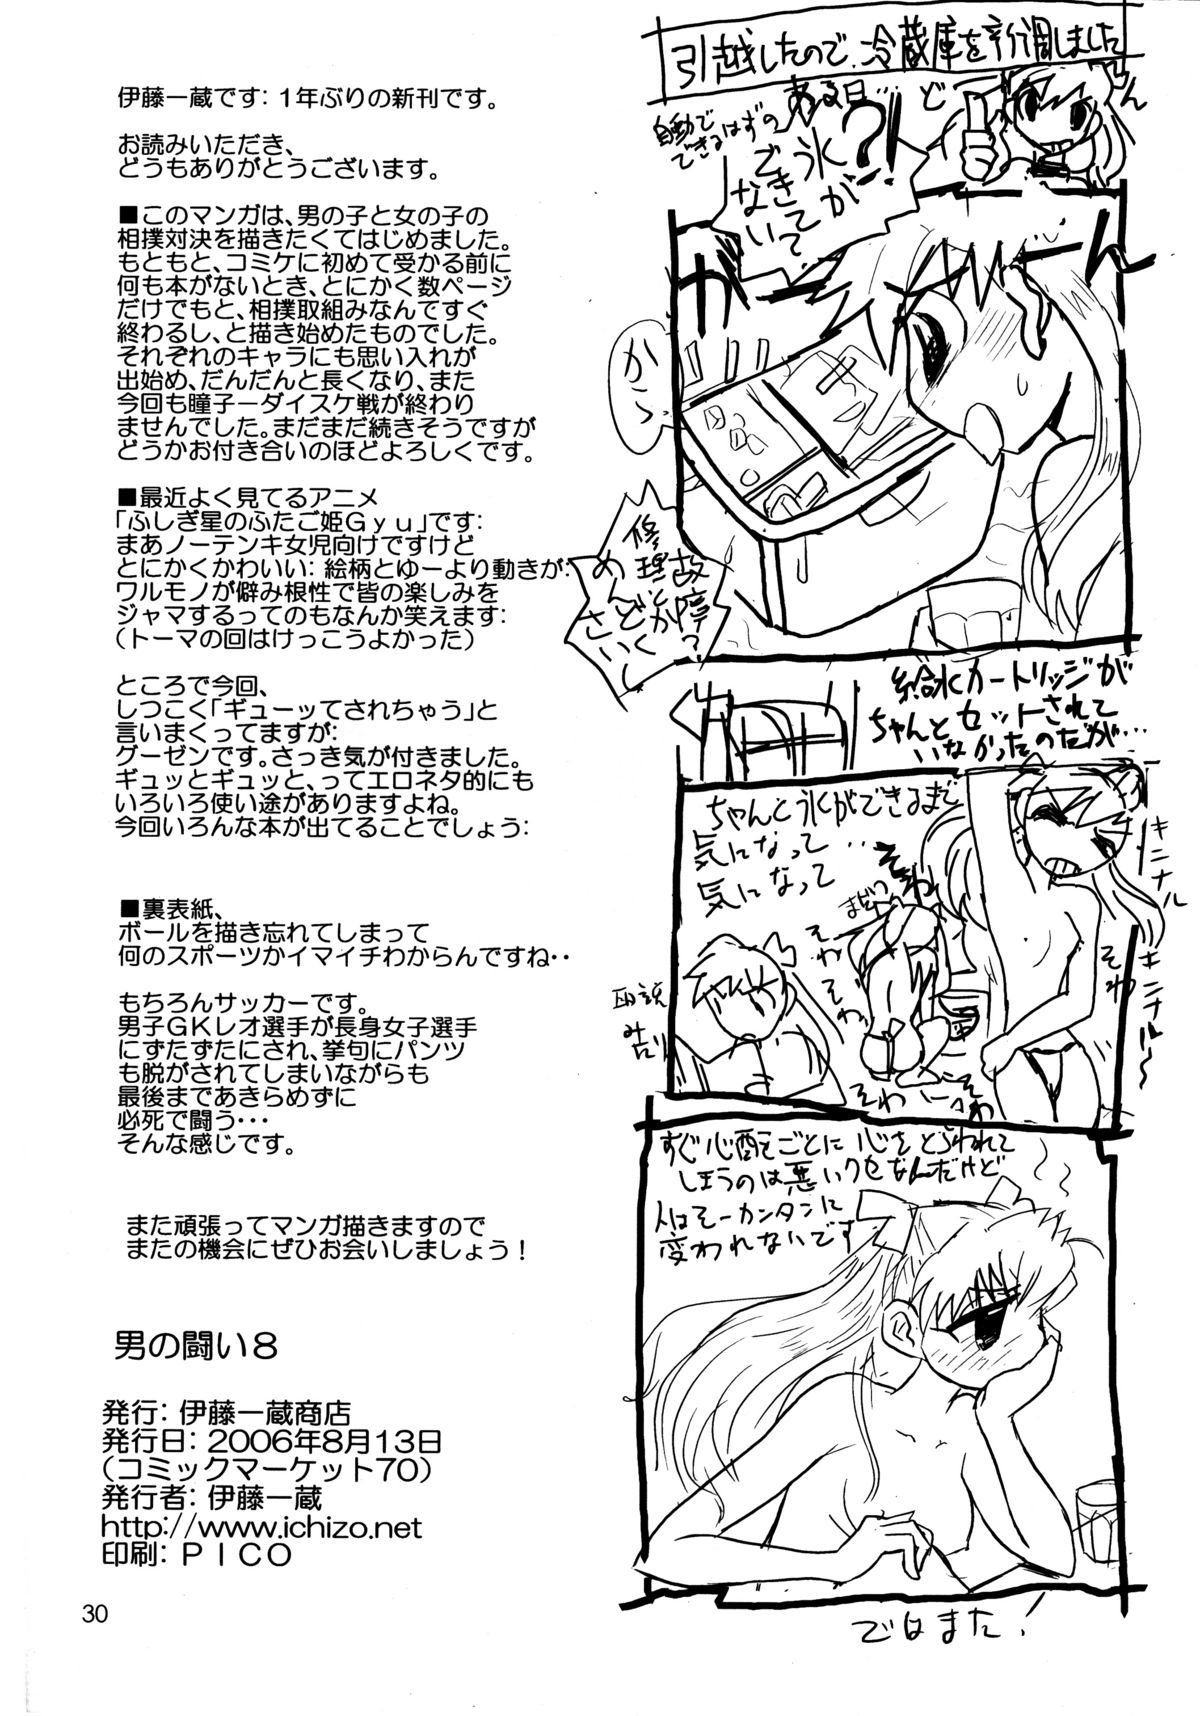 伊藤一蔵です: 1年ぶりの新刊です。
お読みいただき、
どうもありがとうございます。
■このマンガは、男の子と女の子の
相撲対決を描きたくてはじめました。
もともと、コミケに初めて受かる前に
何も本がないとき、とにかく数ページ
だけでもと、相撲取組みなんてすぐ
終わるし、と描き始めたものでした。
それぞれのキャラにも思い入れが
出始め、だんだんと長くなり、また
今回も瞳子ーダイスケ戦が終わり
ませんでした。まだまだ続きそうですが
どうかお付き合いのほどよろしくです。
■最近よく見てるアニメ
「ふしぎ星のふたご姫Gyu」です:
まあノーテンキ女児向けですけど
とにかくかわいい: 絵柄とゆーより動きが:
ワルモノが僻み根性で皆の楽しみを
ジャマするってのもなんか笑えます:
(トーマの回はけっこうよかった)
ところで今回、
しつこく「ギューッてされちゃう」と
言いまくってますが:
グーゼンです。さっき気が付きました。
ギュッとギュッと、ってエロネタ的にも
いろいろ使い途がありますよね。
今回いろんな本が出てることでしょう:
■裏表紙、
ボールを描き忘れてしまって
何のスポーツかイマイチわからんですね・・
もちろんサッカーです。
男子GKレオ選手が長身女子選手
にずたずたにされ、挙句にパンツ
も脱がされてしまいながらも
最後まであきらめずに
必死で闘う・・・
そんな感じです。
また頑張ってマンガ描きますので
またの機会にぜひお会いしましょう!
男の闘い8
発行: 伊藤一蔵商店
発行日: 2006年8月13日
(コミックマーケット70)
発行者: 伊藤一蔵
http://www.ichizo.net
印刷: PICO
30
引越したので、冷蔵庫を新調しました
どん
ある日…
自動で
できるはずの
氷が
できて
いて
ない?!
がーん
から
故障?
修理とか
めんどくさいし
給水カートリッジが
ちゃんとセットされて
いなかったのだが…
ちゃんと氷ができるまで
気になって…
気になって
キニナル
キニナル〜
そわ
そわ
そわ
そわ
そわ
そわ
まだかっ
すぐ心配ごとに心をとらわれて
しまうのは悪いクセなんだけど
人はそーカンタンに
変われないです
ではまた!